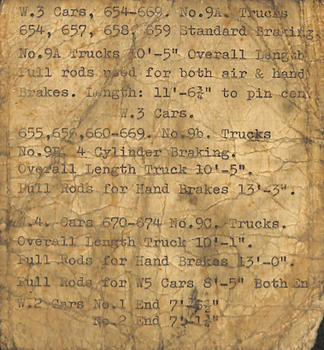 W.3 Cars, 654-669. No.9A. Trucks
654, 657, 658, 659 Standard Braking
No.9A Trucks 10'-5" Overall Length
Pull rods used for both air & hand
Brakes. Length: 11'-6¾" to pin cen
W.3 Cars.
655,656,660-669. No.9b. Trucks
No.9B. 4 Cylinder Braking.
Overall Length Truck 10'-5".
Pull Rods for Hand Brakes 13'-3".
W.4. Cars 670-674 No.9C. Trucks.
Overall Length Truck 10'-1".
Pull Rods for Hand Brakes 13'-0".
Pull Rods for W5 Cars 8'-5" Both En
W.2 Cars No.1 End 7'
No.2 End 7'